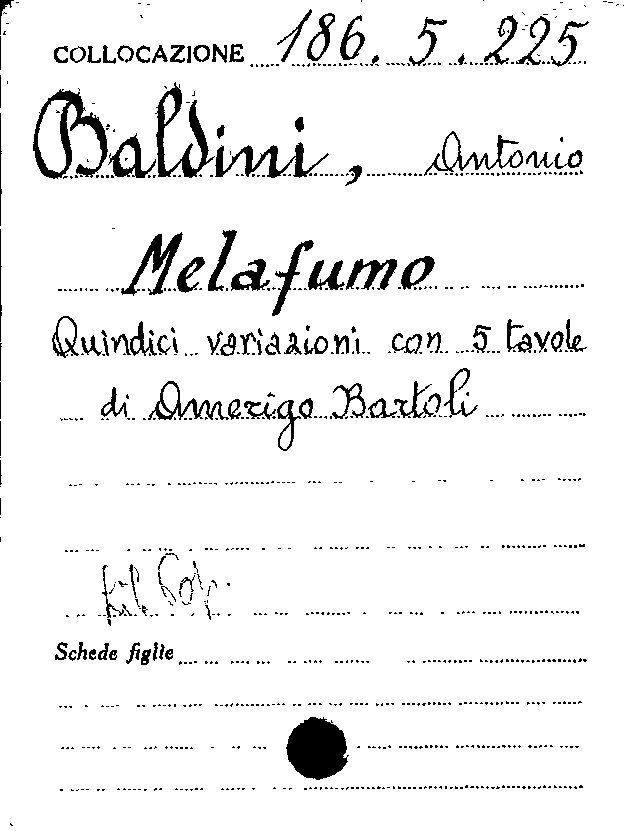 COLLOCAZIONE 186.5.225
Baldini, Antonio
Melafumo
Quindici variazioni con 5 tavole
di Amerigo Bartoli
Schede figlie